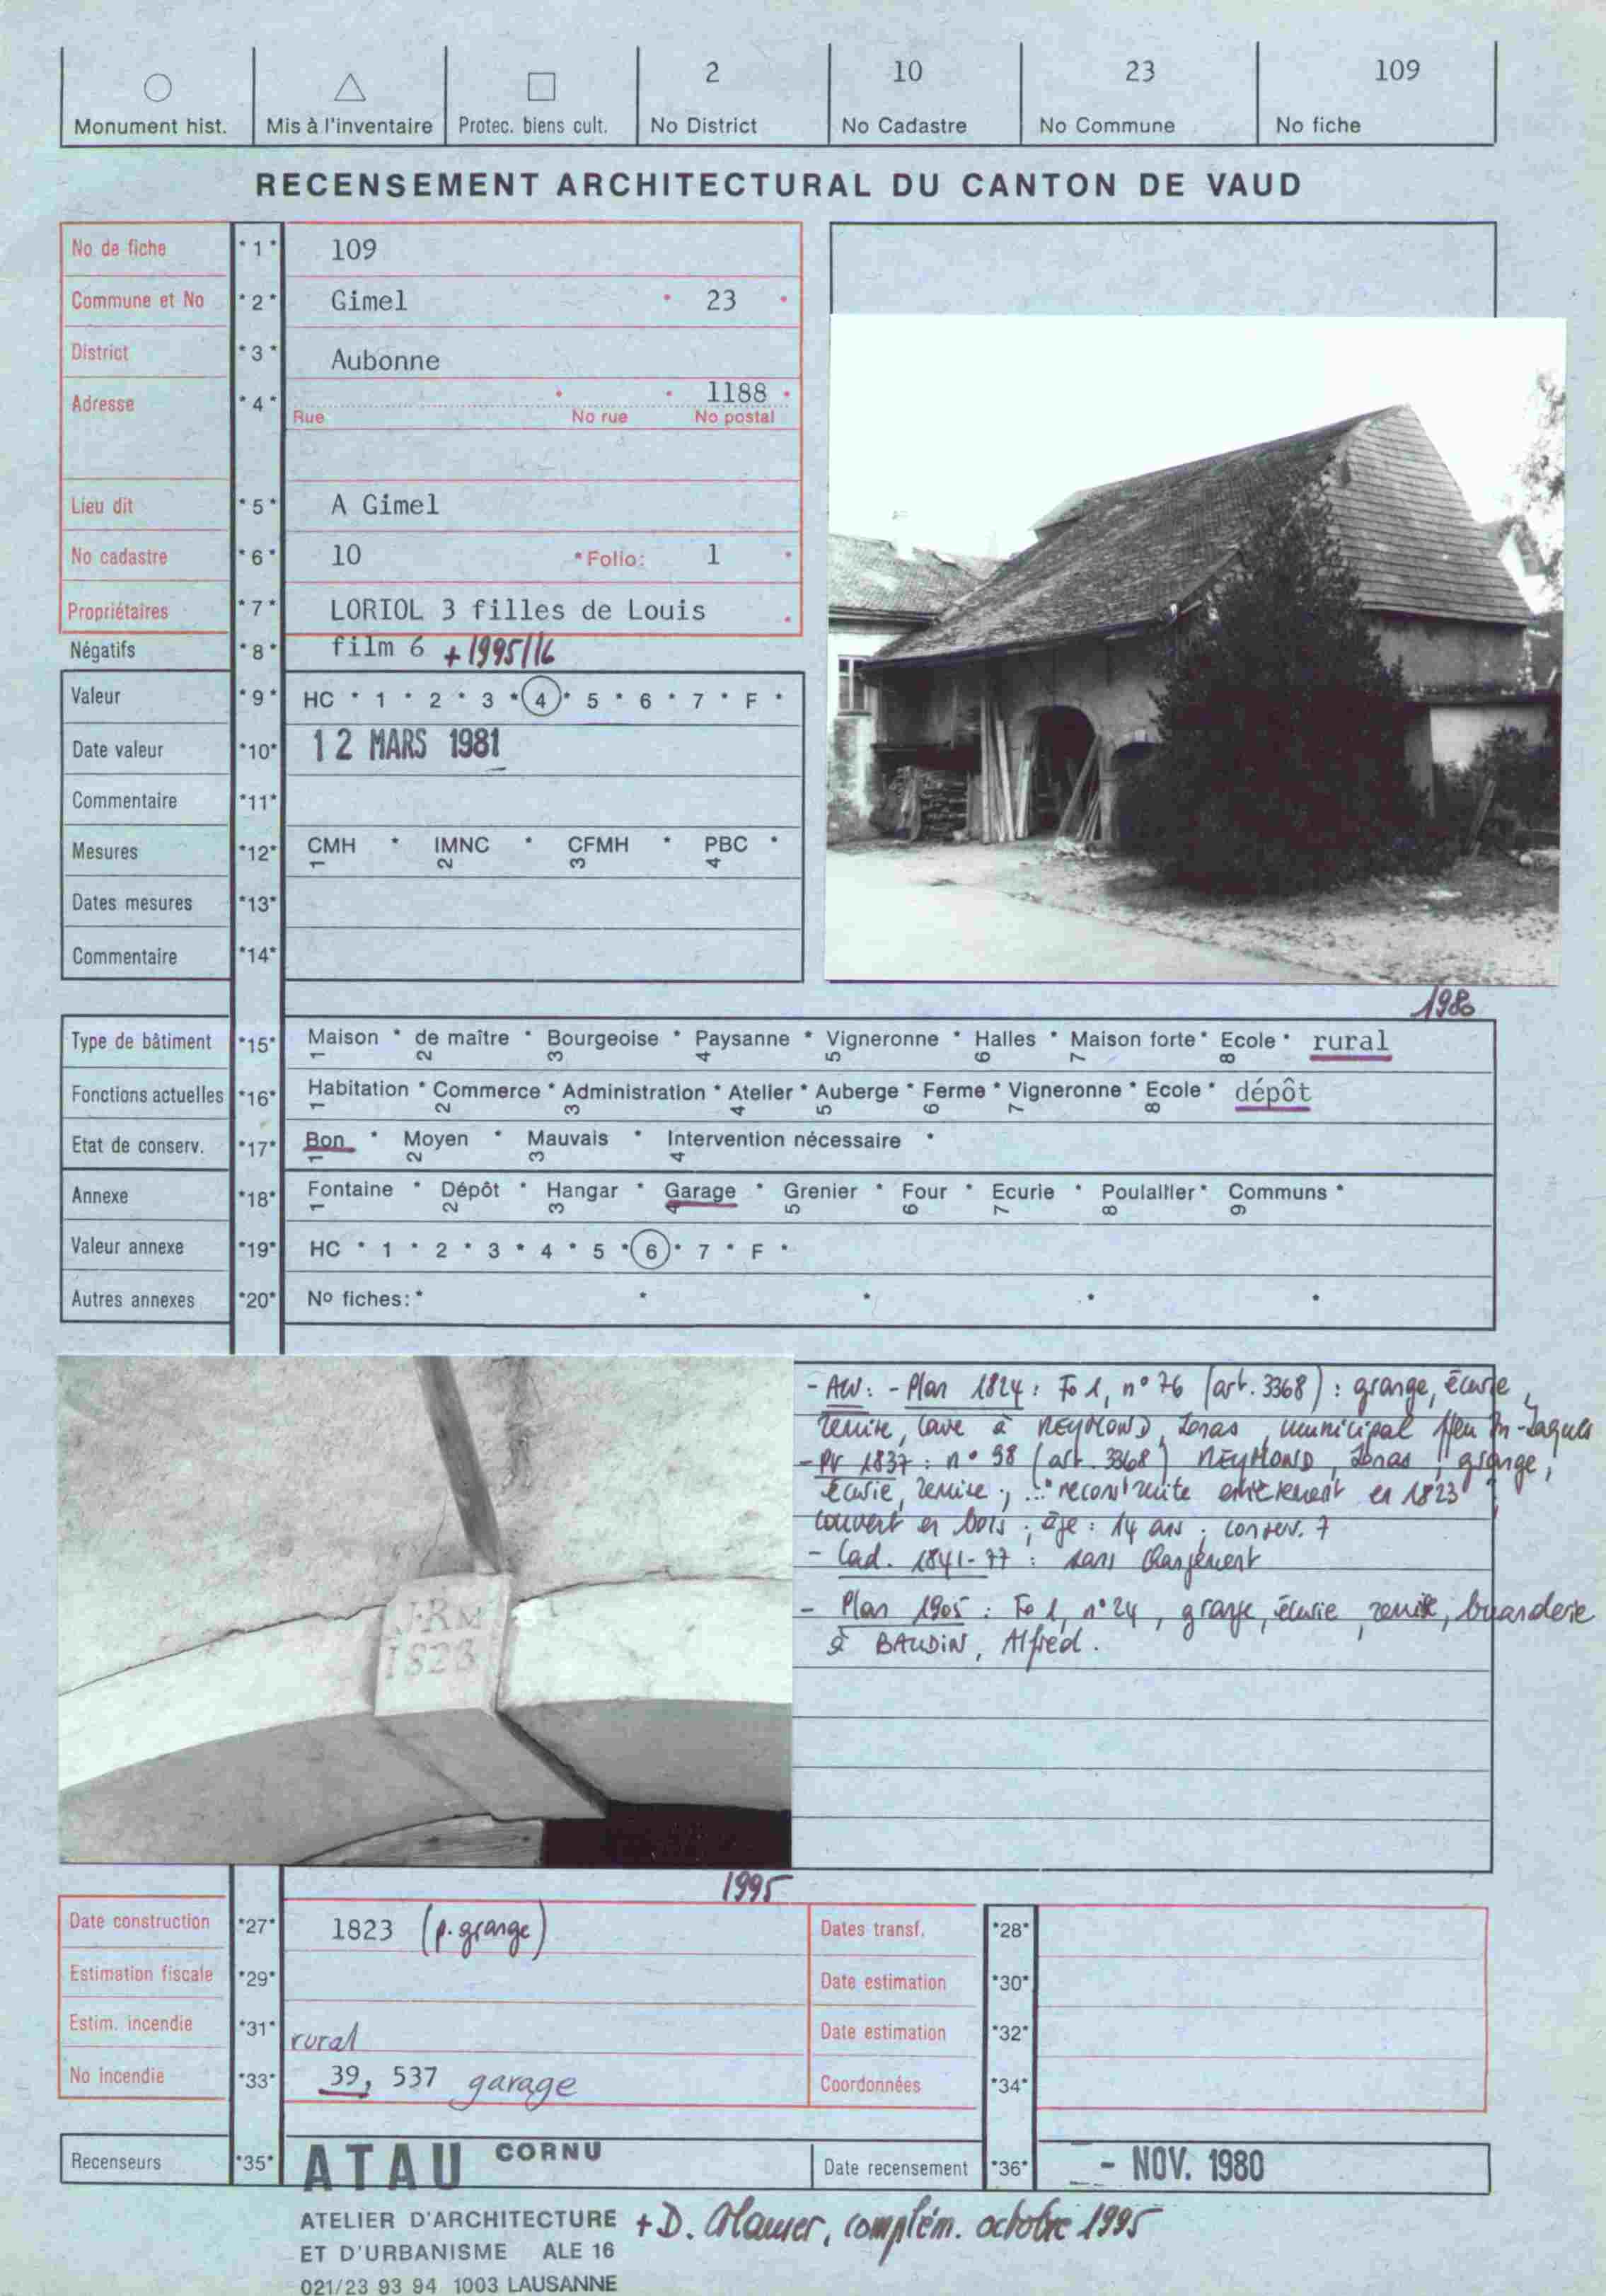 2 10 23 109
Monument hist. Mis à l'inventaire Protec. biens cult. No District No Cadastre No Commune No fiche
RECENSEMENT ARCHITECTURAL DU CANTON DE VAUD
No de fiche *1* 109
Commune et No *2* Gimel * 23 *
District *3* Aubonne
Adresse *4* * * 1188 *
Rue No rue No postal
Lieu dit *5* A Gimel
No cadastre *6* 10 * Folio: 1 *
Propriétaires *7* LORIOL 3 filles de Louis
Négatifs *8* film 6 + 1995/16
Valeur *9* HC * 1 * 2 * 3 * 4 * 5 * 6 * 7 * F *
Date valeur *10* 12 MARS 1981
Commentaire *11*
Mesures *12* CMH * IMNC * CFMH * PBC *
1 2 3 4
Dates mesures *13*
Commentaire *14*
1980
Type de bâtiment *15* Maison * de maître * Bourgeoise * Paysanne * Vigneronne * Halles * Maison forte * Ecole * rural
1 2 3 4 5 6 7 8
Fonctions actuelles *16* Habitation * Commerce * Administration * Atelier * Auberge * Ferme * Vigneronne * Ecole * dépôt
1 2 3 4 5 6 7 8
Etat de conserv. *17* Bon * Moyen * Mauvais * Intervention nécessaire *
1 2 3 4
Annexe *18* Fontaine * Dépôt * Hangar * Garage * Grenier * Four * Ecurie * Poulailler * Communs *
1 2 3 4 5 6 7 8 9
Valeur annexe *19* HC * 1 * 2 * 3 * 4 * 5 * 6 * 7 * F *
Autres annexes *20* No fiches: * * * * *
J.RM
1823
- ACV: - Plan 1824: Fo 1, n° 76 (art. 3368) : grange, écurie,
remise, cave à REYMOND, Jonas, municipal, feu Jn-Jaques
- PV 1837: n° 38 (art. 3368) REYMOND, Jonas, grange,
écurie, remise; ..." reconstruite entièrement en 1823";
couvert en bois; âge: 14 ans; conserv. 7
- Cad. 1841-77 : sans changement
- Plan 1905 : Fo 1, n° 24, grange, écurie, remise, buanderie
à BAUDIN, Alfred.
1995
Date construction *27* 1823 (p. grange) Dates transf. *28*
Estimation fiscale *29* Date estimation *30*
Estim. incendie *31* rural Date estimation *32*
No incendie *33* 39, 537 garage Coordonnées *34*
Recenseurs *35* ATAU CORNU Date recensement *36* - NOV. 1980
ATELIER D'ARCHITECTURE + D. Glauser, complém. octobre 1995
ET D'URBANISME ALE 16
021/23 93 94 1003 LAUSANNE